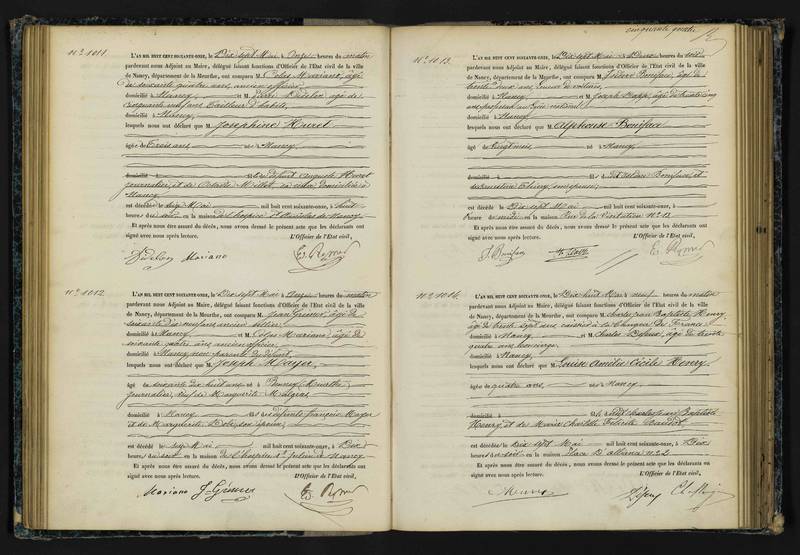 cinquante quatre
N° 1011.
L'AN MIL HUIT CENT SOIXANTE-ONZE, le Dix sept Mai à Onze heures du matin
pardevant nous Adjoint au Maire, délégué faisant fonctions d'Officier de l'Etat civil de la ville
de Nancy, département de la Meurthe, ont comparu M. Colas Mariano, âgé
de soixante quatre ans, ancien officier
domicilié à Nancy et M. Pierre âgé de
cinquante ans tailleur d'habits,
domicilié à Nancy,
lesquels nous ont déclaré que M. Joséphine Huret
âgée de Trois ans née à Nancy
domicilié à défunt Auguste Huret
journalier, et de Octavie Millot, sa veuve domiciliée à
Nancy
est décédée le seize Mai mil huit cent soixante-onze, à huit
heures du soir en la maison de l'hospice St Stanislas de Nancy
Et après nous être assuré du décès, nous avons dressé le présent acte que les déclarants ont
signé avec nous après lecture. L'Officier de l'Etat civil,
Mariano
N° 1012.
L'AN MIL HUIT CENT SOIXANTE-ONZE, le Dix sept Mai à Onze heures du matin
pardevant nous Adjoint au Maire, délégué faisant fonctions d'Officier de l'Etat civil de la ville
de Nancy, département de la Meurthe, ont comparu M. Jean Grimer, âgé de
soixante dix neuf ans ancien sellier
domicilié à Nancy et M. Colas Mariano, âgé de
soixante quatre ans ancien officier
domicilié à Nancy non parents du défunt
lesquels nous ont déclaré que M. Joseph Mayer
âgé de soixante dix huit ans né à Meurthe
journalier, veuf de Marguerite Malgras
domicilié à Nancy fils de défunts François Mayer
et de Marguerite son épouse
est décédé le seize Mai mil huit cent soixante-onze, à Dix
heures du soir en la maison de l'hospice St Julien de Nancy
Et après nous être assuré du décès, nous avons dressé le présent acte que les déclarants ont
signé avec nous après lecture. L'Officier de l'Etat civil,
Mariano J. Grimer
N° 1013.
L'AN MIL HUIT CENT SOIXANTE-ONZE, le Dix sept Mai à Deux heures du soir
pardevant nous Adjoint au Maire, délégué faisant fonctions d'Officier de l'Etat civil de la ville
de Nancy, département de la Meurthe, ont comparu M. Isidore Boniface, âgé de
trente deux ans,
domicilié à Nancy et M. Joseph Bapp, âgé de trente cinq
ans professeur au Lycée national
domicilié à Nancy
lesquels nous ont déclaré que M. Alphonse Boniface
âgé de Vingt mois né à Nancy
domicilié à fils de Isidore Boniface, et
de Thiéry, son épouse
est décédé le Dix sept Mai mil huit cent soixante-onze, à
heure de midi en la maison Rue de la Visitation N° 13
Et après nous être assuré du décès, nous avons dressé le présent acte que les déclarants ont
signé avec nous après lecture. L'Officier de l'Etat civil,
N° 1014.
L'AN MIL HUIT CENT SOIXANTE-ONZE, le Dix huit Mai à neuf heures du matin
pardevant nous Adjoint au Maire, délégué faisant fonctions d'Officier de l'Etat civil de la ville
de Nancy, département de la Meurthe, ont comparu M. Charles Jean Baptiste Henry
âgé de trente sept ans caissier à la Banque de France
domicilié à Nancy et M. Charles âgé de trente
quatre ans concierge
domicilié à Nancy
lesquels nous ont déclaré que M. Louise Amélie Cécile Henry
âgée de quatre ans, née à Nancy
domicilié à fille de dit Charles Jean Baptiste
Henry et de Marie Charlotte Félicité
est décédée le Dix sept Mai mil huit cent soixante-onze, à Dix
heures du soir en la maison Place D'alliance N° 2
Et après nous être assuré du décès, nous avons dressé le présent acte que les déclarants ont
signé avec nous après lecture. L'Officier de l'Etat civil,
Henry